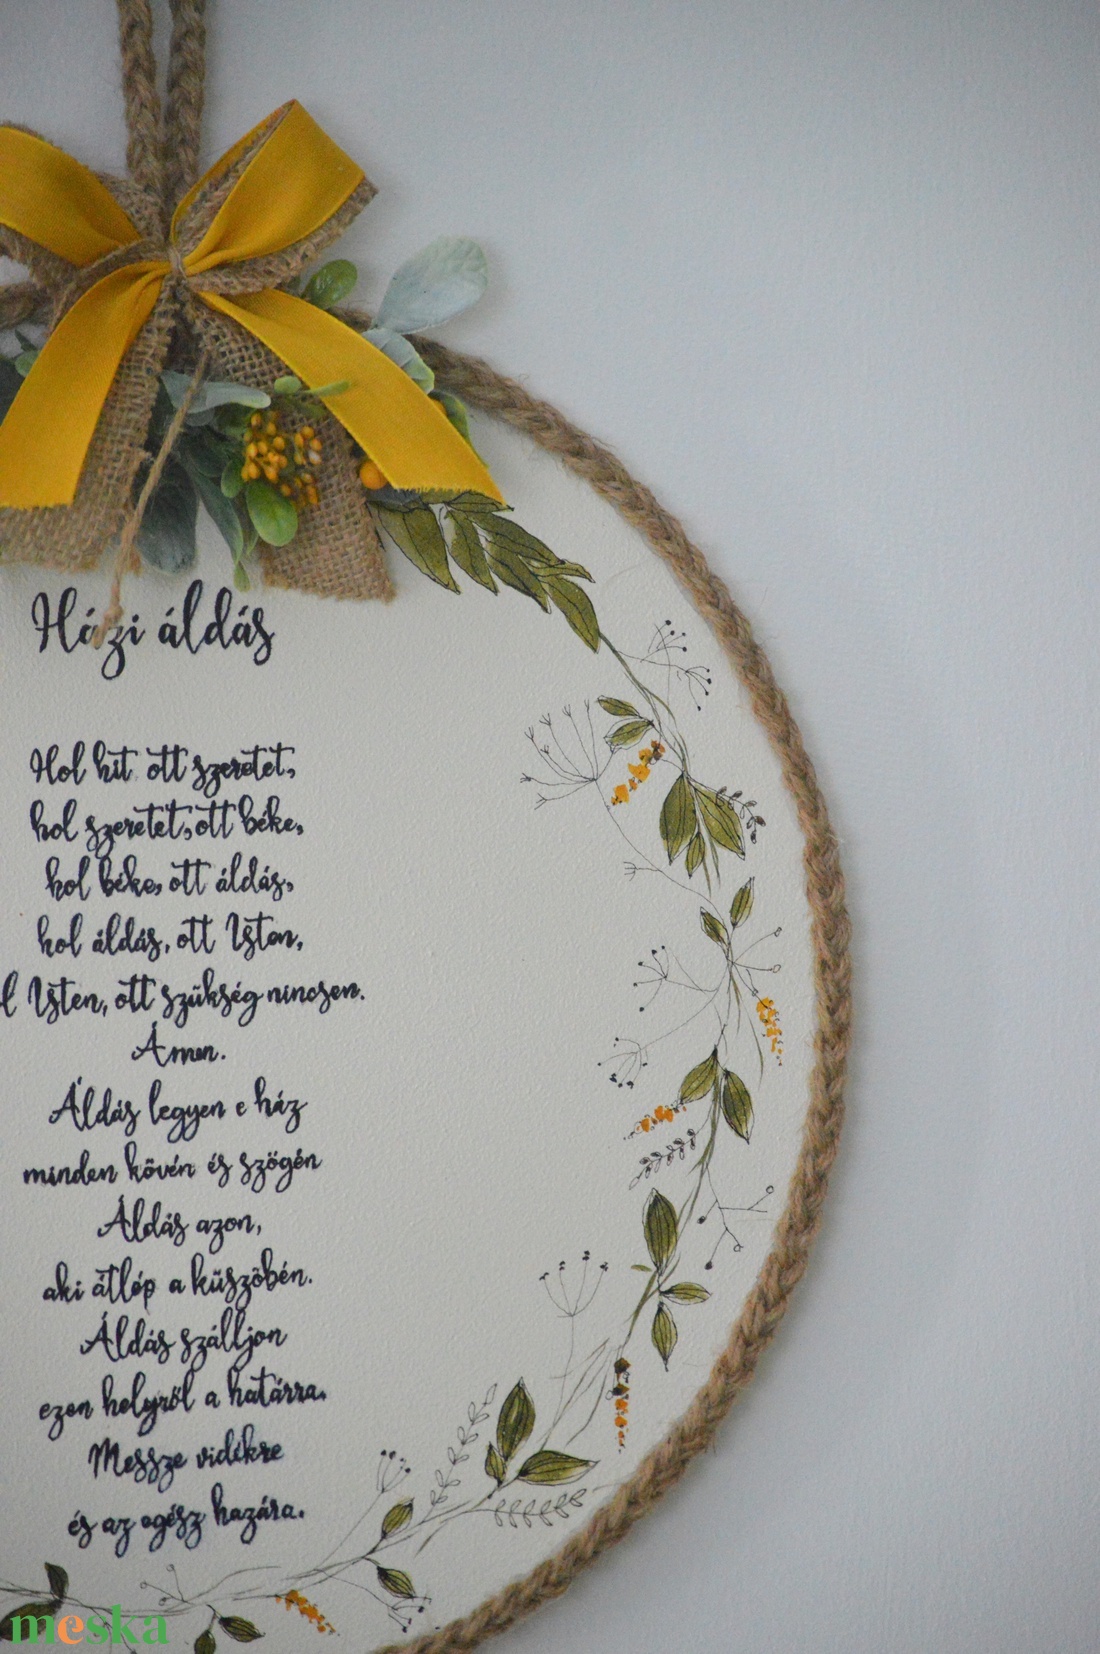 Házi áldás
Hol hit ott szeretet,
hol szeretet, ott béke,
hol béke, ott áldás,
hol áldás, ott Isten,
l Isten, ott szükség nincsen.
Ámen.
Áldás legyen e ház
minden kövén és szögén
Áldás azon,
aki átlép a küszöbén.
Áldás szálljon
ezen helyről a határra.
Messze vidékre
és az egész hazára.
meska